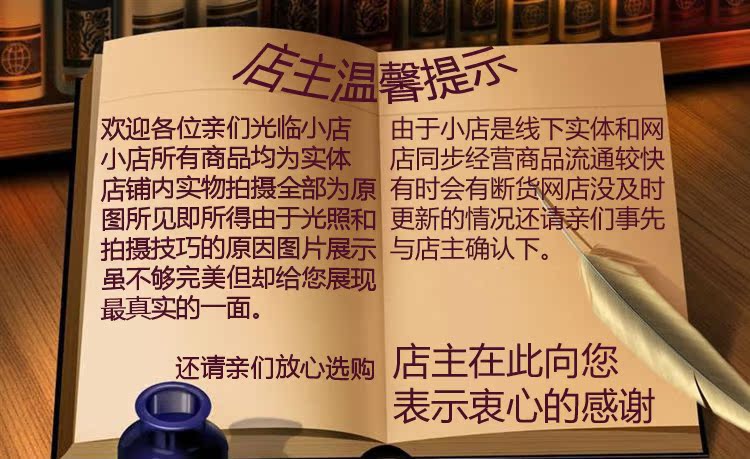 店主温馨提示
欢迎各位亲们光临小店
小店所有商品均为实体
店铺内实物拍摄全部为原
图所见即所得由于光照和
拍摄技巧的原因图片展示
虽不够完美但却给您展现
最真实的一面。
还请亲们放心选购
由于小店是线下实体和网
店同步经营商品流通较快
有时会有断货网店没及时
更新的情况还请亲们事先
与店主确认下。
店主在此向您
表示衷心的感谢